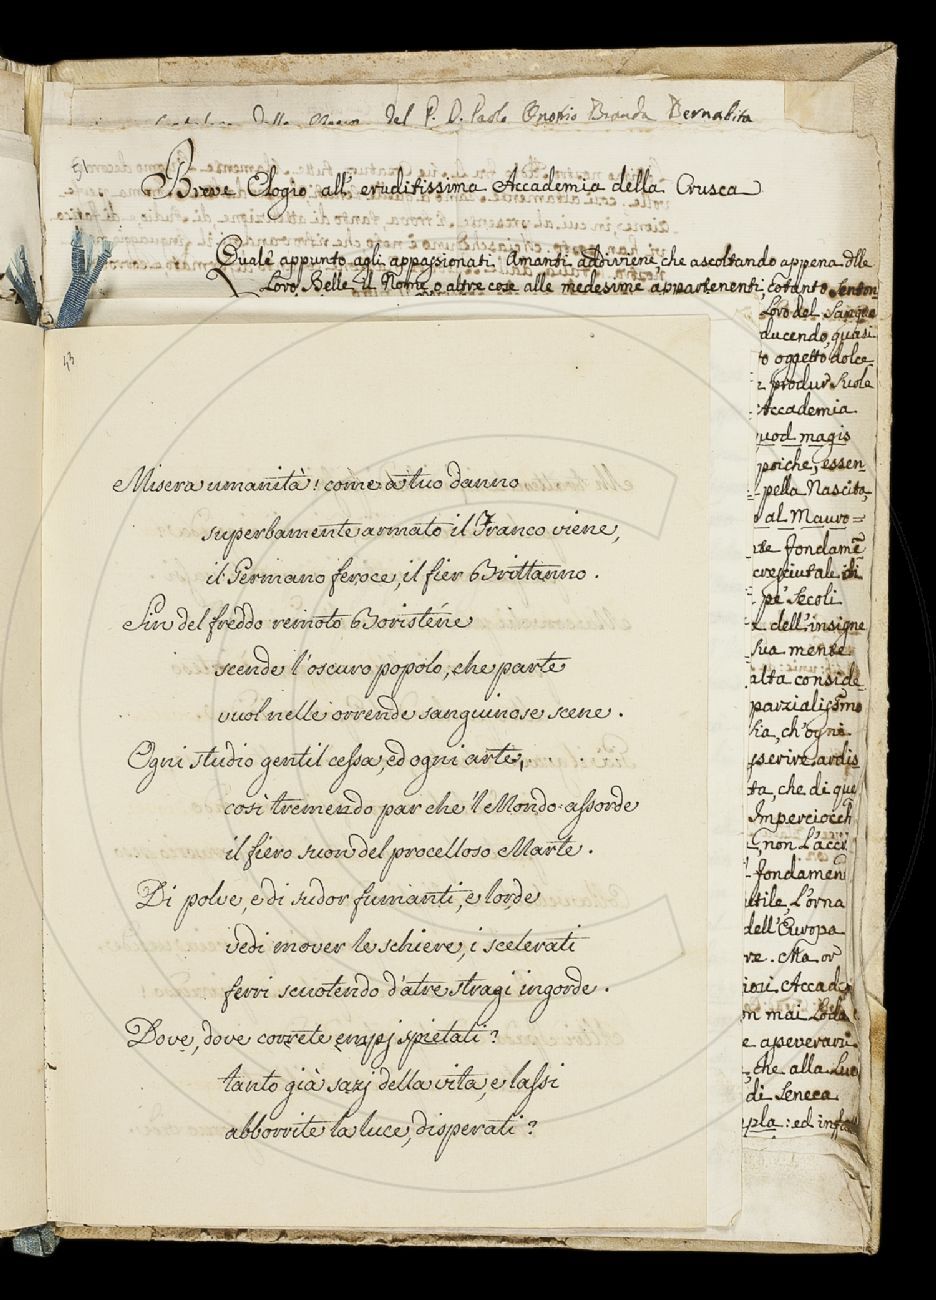 del P. D. Paolo Onofrio Branda Bernabita
51
Breve Elogio all' eruditissima Accademia della Crusca
Qual'è appunto agli appassionati Amanti addiviene che ascoltando appena dlle
Loro Belle il Nome o altre cose alle medesime appartenenti, cotanto senton
Loro del Sangue
ducendo, quasi
to oggetto dolce
produr suole
Accademia
quod magis
poiche, essen
pella Nascita,
al Mauro=
fondamē
cresciutale di
pe' Secoli
dell'insigne
sua mente
alta conside
parzialissmo
ch'ogni
serire ardis
ta, che di que
Imperciocch
non l'acce
fondamen
utile, L'orna
dell'Europa
re. Ma or
Accad
mai Loda
e apeverari
, che alla Luo
di Seneca
: ed infa
43
Misera umanità! come à tuo danno
superbamente armato il Franco viene,
il Germano feroce, il fier Brittanno.
Sin del freddo remoto Boristéne
scende l'oscuro popolo, che parte
vuol nelle orrende sanguinose scene.
Ogni studio gentil cessa, ed ogni arte,
così tremendo par che 'l Mondo assorde
il fiero suon del procelloso Marte.
Di polve, e di sudor fumanti, e lorde
vedi mover le schiere, i scelerati
ferri scuotendo d'atre stragi ingorde.
Dove, dove correte empj spietati?
tanto già sazj della vita, e lassi
abborrite la luce, disperati?